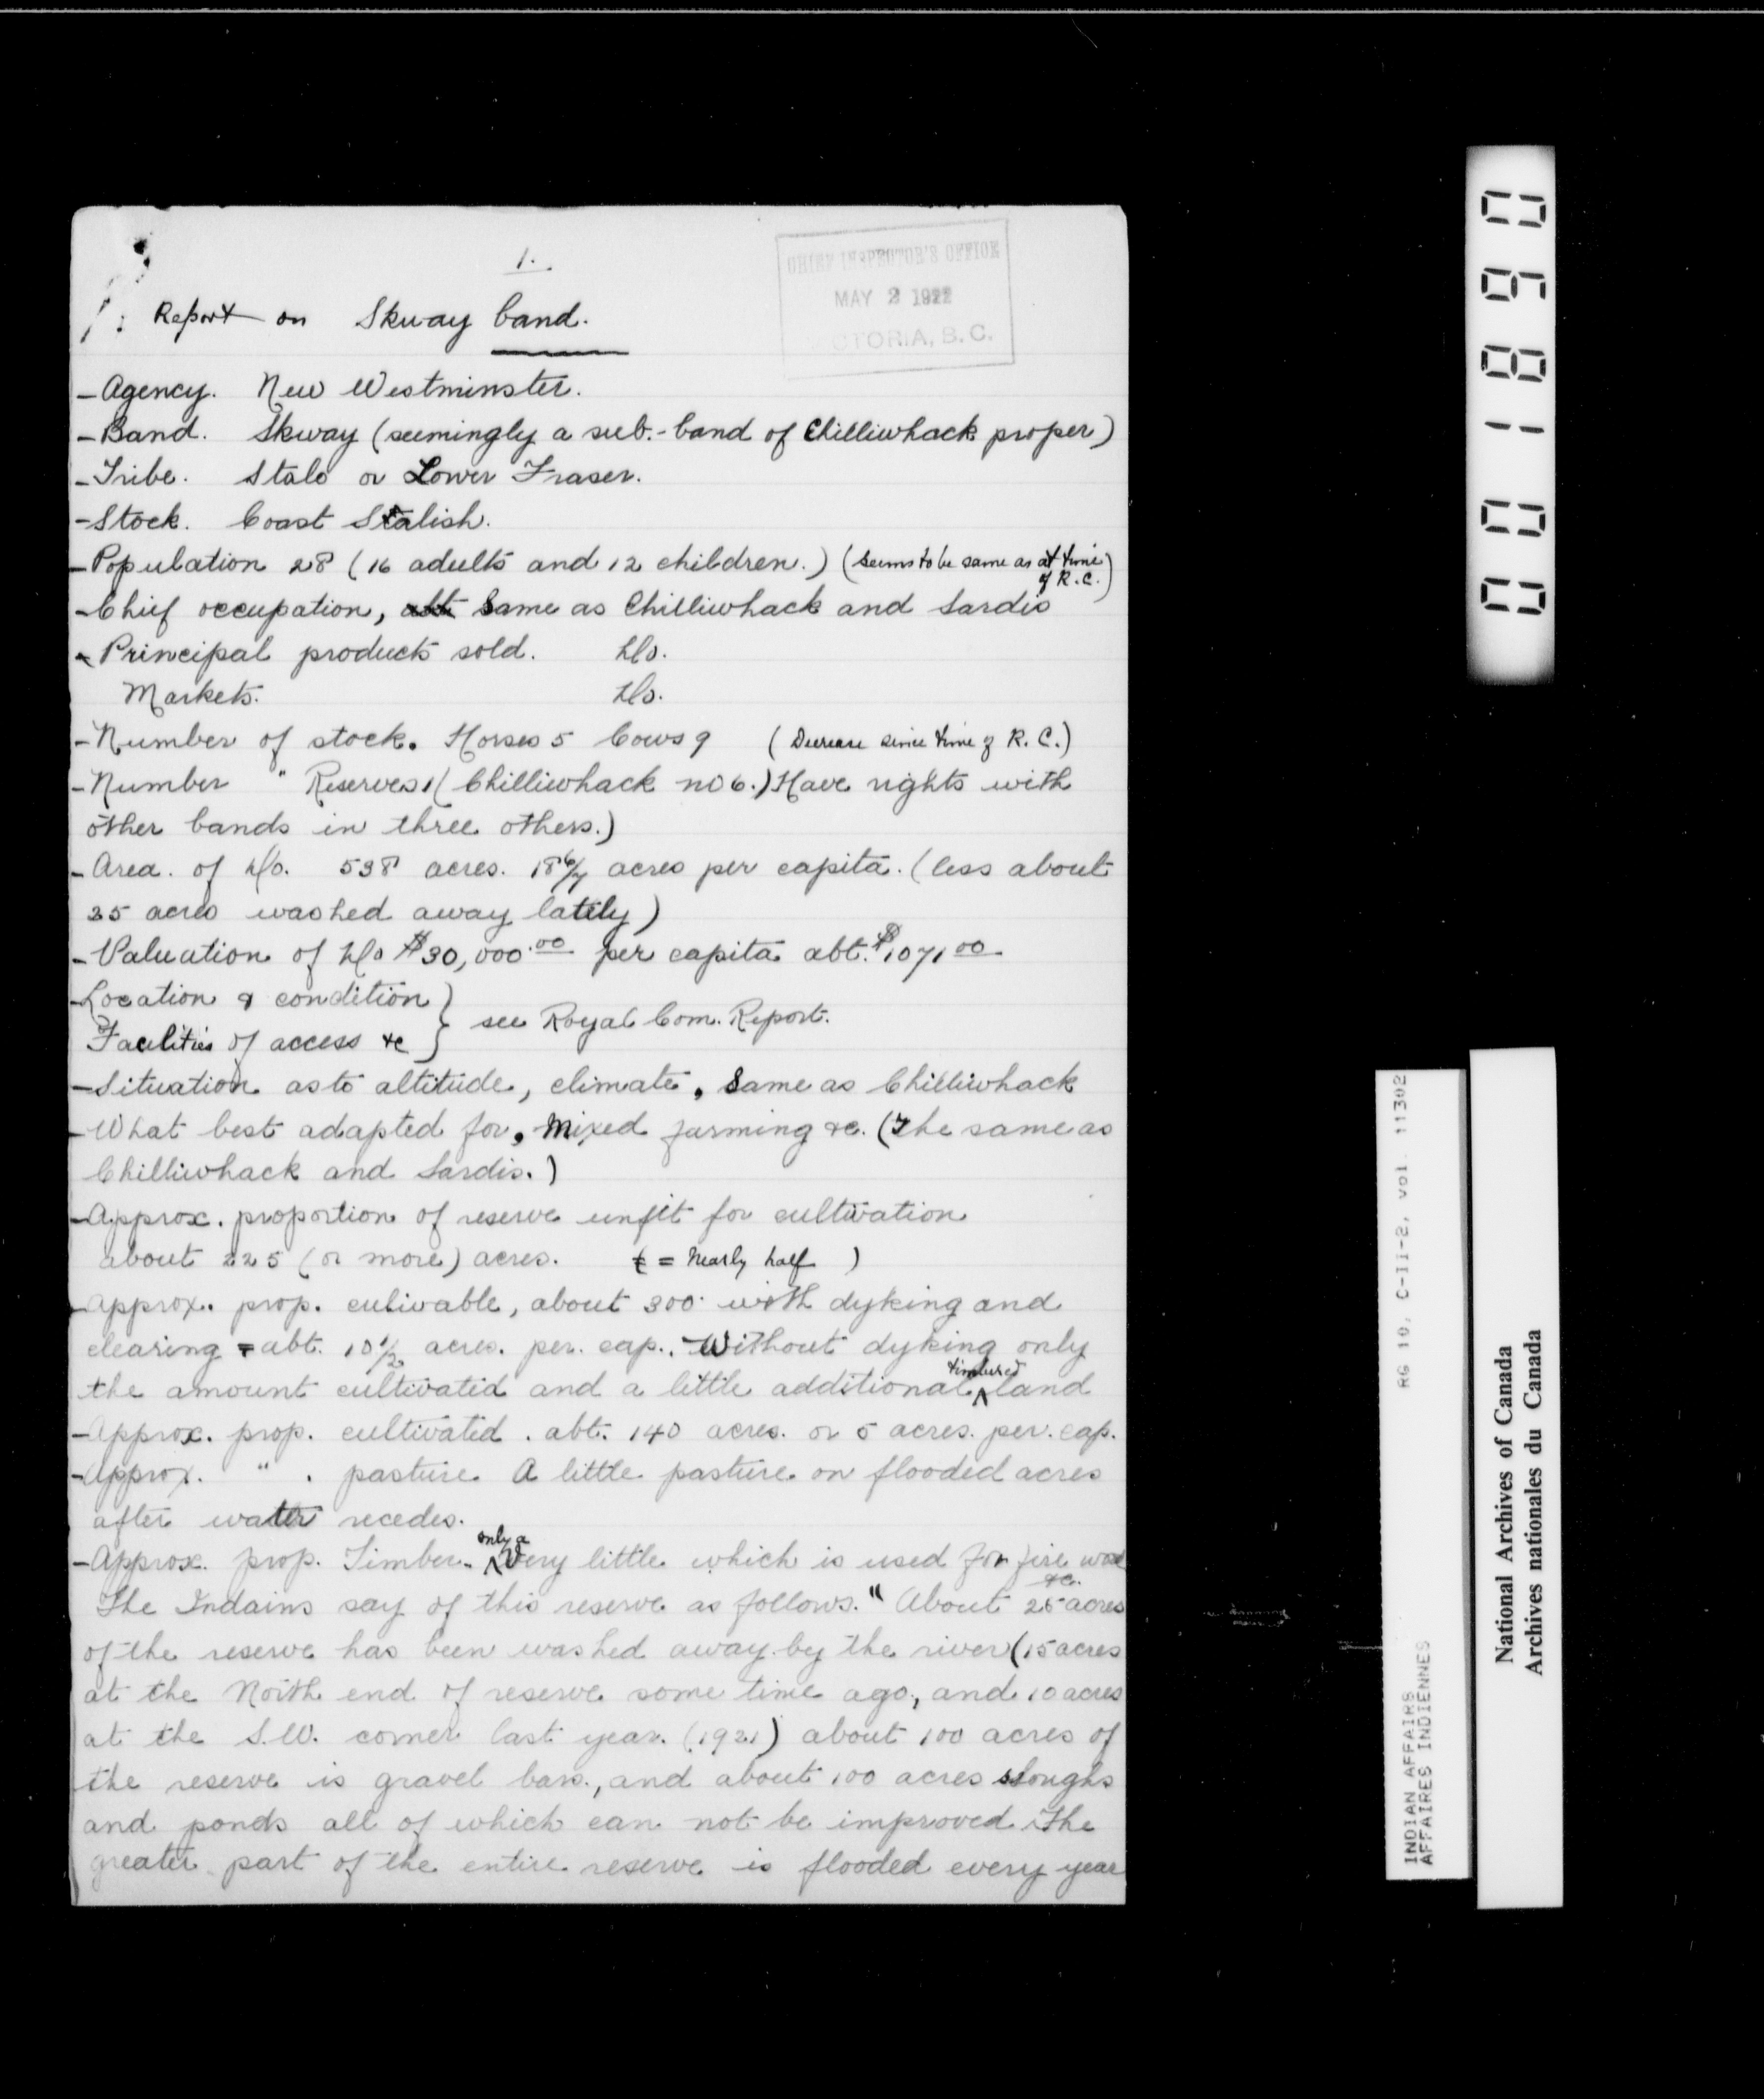 1.
CHIEF INSPECTOR'S OFFICE
MAY 2 1922
CTORIA, B. C.
Report on Skway band.
- Agency. New Westminster.
- Band. Skway (seemingly a sub.-band of Chilliwhack proper)
- Tribe. Stalo or Lower Fraser.
- Stock. Coast Stalish.
- Population 28 (16 adults and 12 children.) (seems to be same as at time of R.C.)
- Chief occupation, abt Same as Chilliwhack and Sardis
- Principal products sold. Do.
Markets. Do.
- Number of stock. Horses 5 Cows 9 (Decrease since time of R. C.)
- Number " Reserves 1 (Chilliwhack no 6.) Have rights with
other bands in three others.)
- Area. of Do. 538 acres. 18 6/7 acres per capita. (less about
25 acres washed away lately)
- Valuation of Do $30,000.00 per capita abt. $1071 00
- Location & condition } see Royal Com. Report.
Facilities of access &c
- Situation as to altitude, climate, Same as Chilliwhack
- What best adapted for, Mixed farming &c. (The same as
Chilliwhack and Sardis.)
- Approx. proportion of reserve unfit for cultivation
about 225 (or more) acres. ( = nearly half )
- Approx. prop. culivable, about 300 with dyking and
clearing = abt. 10 1/2 acres. per. cap.. Without dyking only
the amount cultivated and a little additional timbered land
- Approx. prop. cultivated. abt. 140 acres. or 5 acres. per. cap.
- Approx. " . pasture. A little pasture on flooded acres
after water recedes.
- Approx. prop. Timber. only a Very little which is used for fire wood &c.
The Indains say of this reserve as follows. " About 25 acres
of the reserve has been washed away by the river (15 acres
at the North end of reserve some time ago, and 10 acres
at the S.W. corner last year. (1921) about 100 acres of
the reserve is gravel bars., and about 100 acres sloughs
and ponds all of which can not be improved. The
greater part of the entire reserve is flooded every year
001890
RG 10, C-11-2, vol. 11302
INDIAN AFFAIRS
AFFAIRES INDIENNES
National Archives of Canada
Archives nationales du Canada